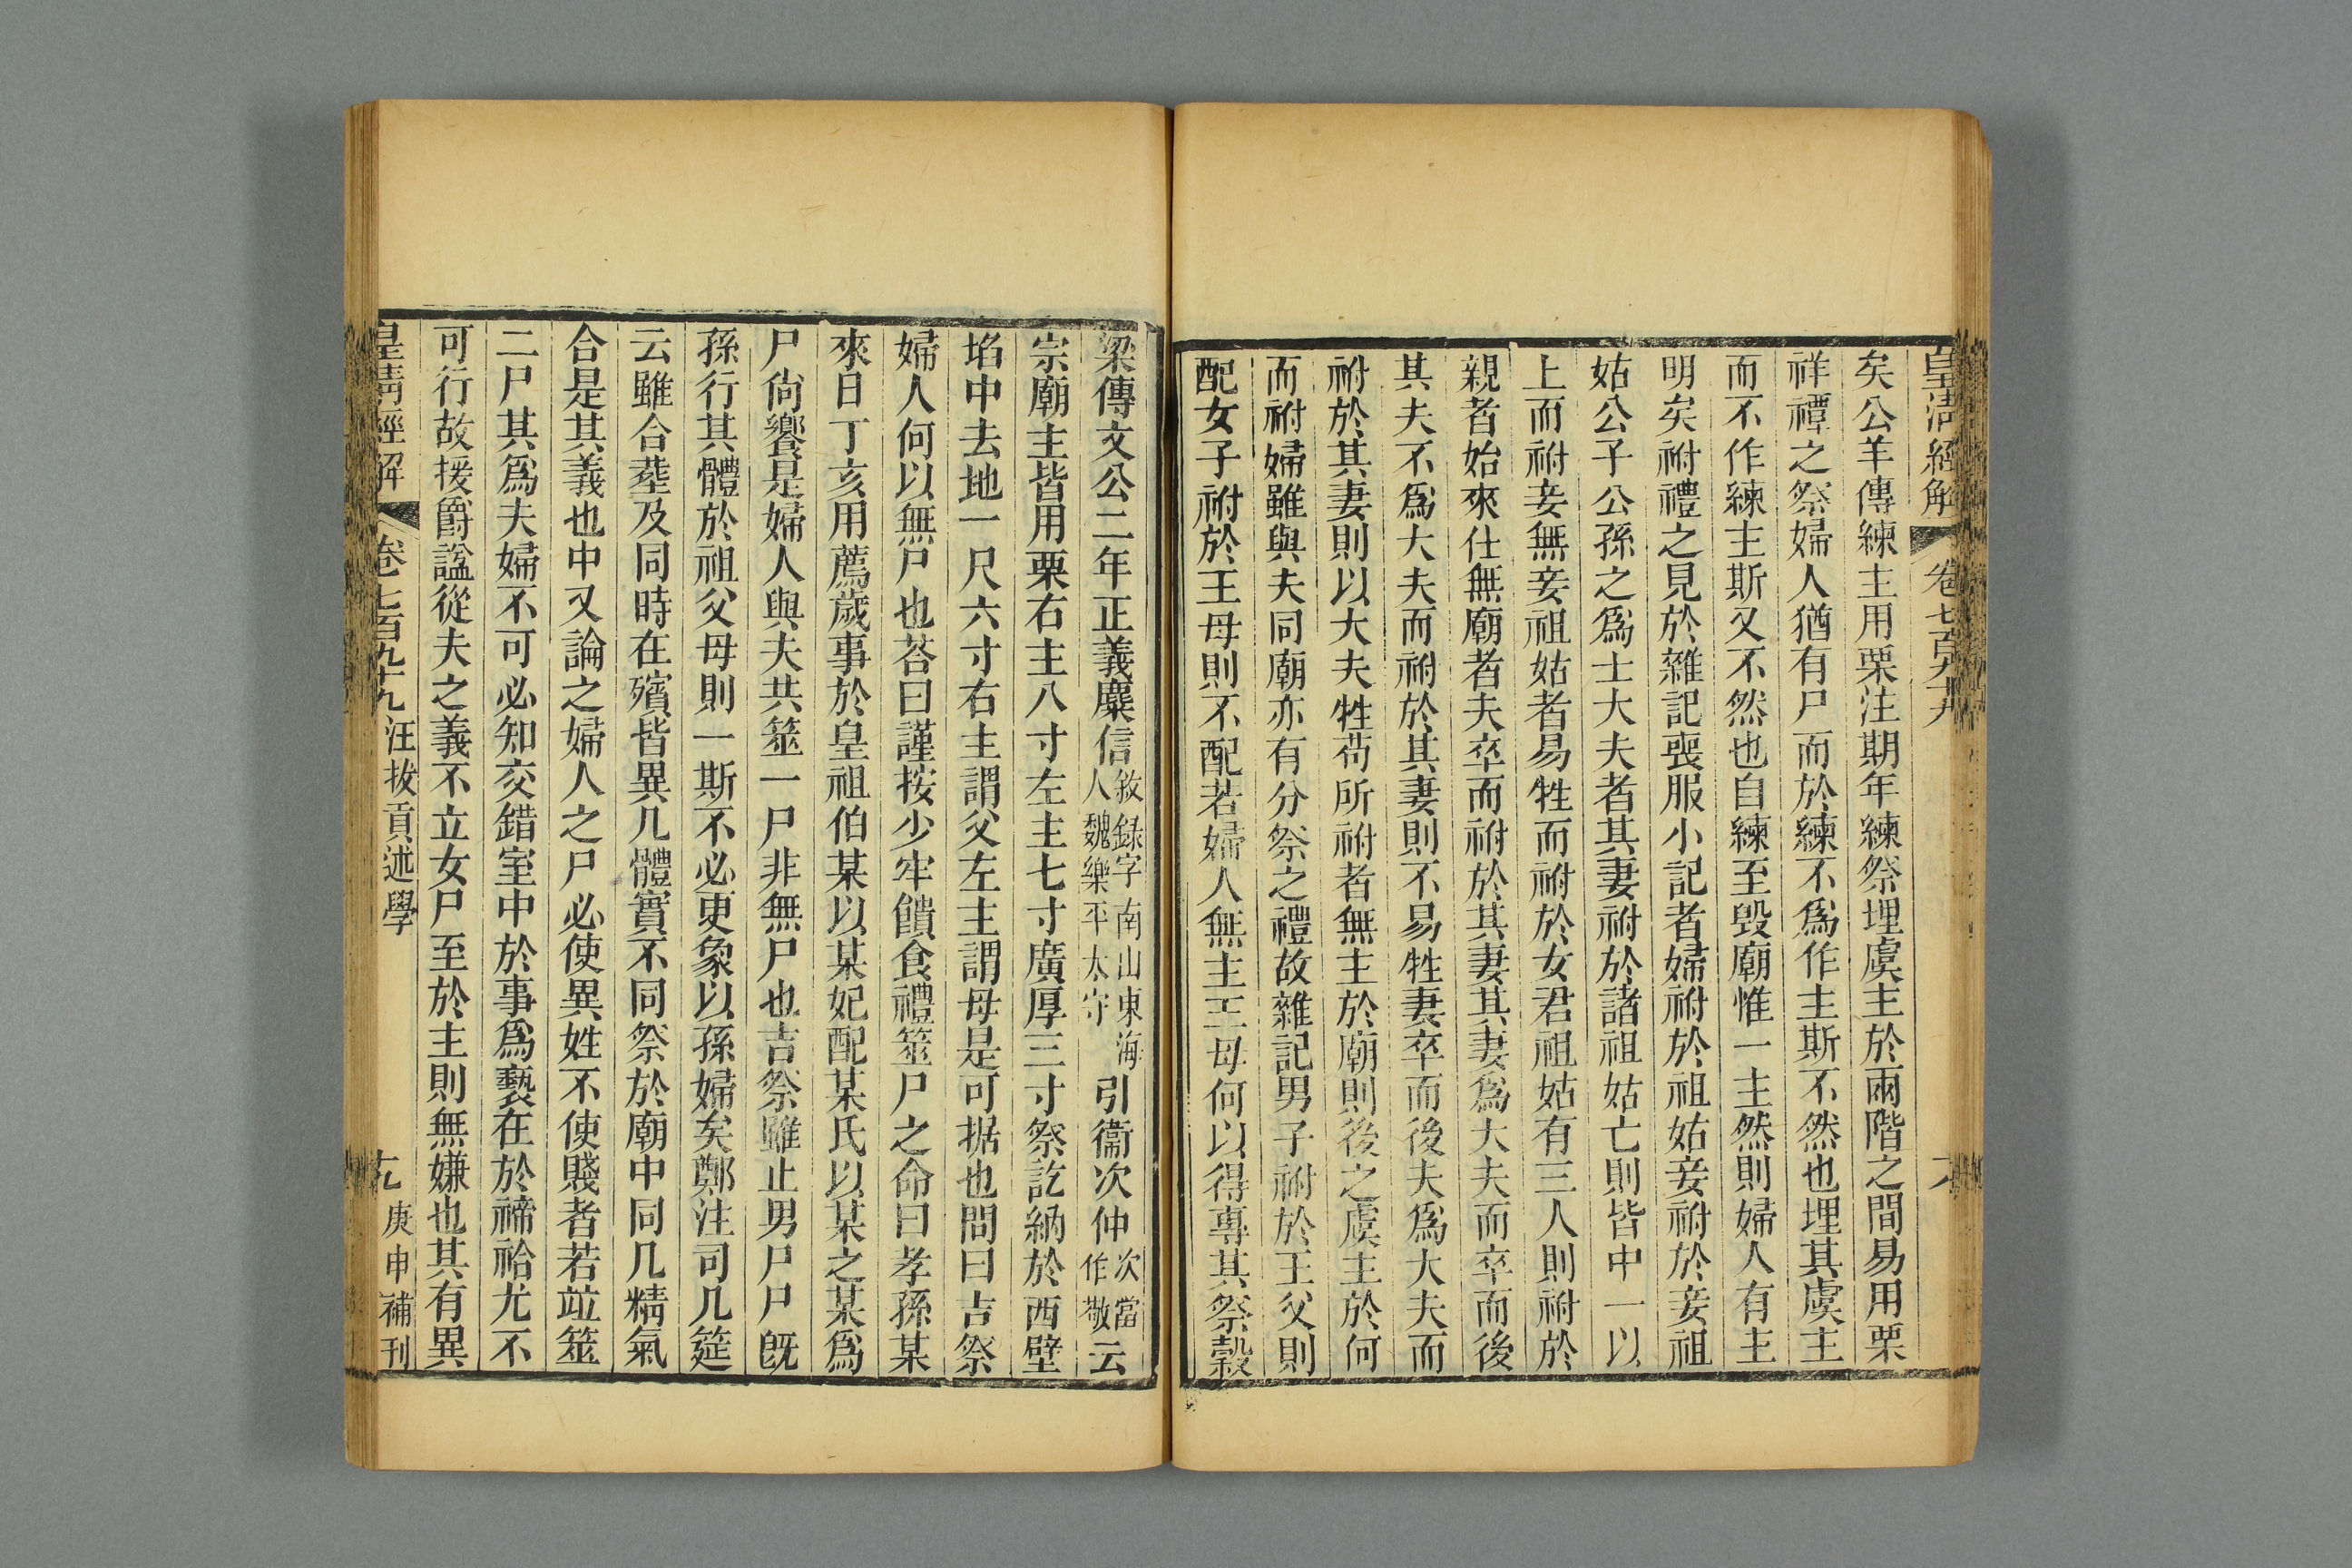 皇清經解 卷七百九十九 十八
矣公羊傳練主用栗注期年練祭埋虞主於兩階之間易用栗
祥禫之祭婦人猶有尸而於練不爲作主斯不然也埋其虞主
而不作練主斯又不然也自練至毀廟惟一主然則婦人有主
明矣祔禮之見於雜記喪服小記者婦祔於祖姑妾祔於妾祖
姑公子公孫之爲士大夫者其妻祔於諸祖姑亡則皆中一以
上而祔妾無妾祖姑者易牲而祔於女君祖姑有三人則祔於
親者始來仕無廟者夫卒而祔於其妻其妻爲大夫而卒而後
其夫不爲大夫而祔於其妻則不易牲妻卒而後夫爲大夫而
祔於其妻則以大夫牲苟所祔者無主於廟則後之虞主於何
而祔婦雖與夫同廟亦有分祭之禮故雜記男子祔於王父則
配女子祔於王母則不配若婦人無主王母何以得專其祭穀
梁傳文公二年正義麋信敘録字南山東海人魏樂平太守引衞次仲次當作敬云
宗廟主皆用栗右主八寸左主七寸廣厚三寸祭訖納於西壁
埳中去地一尺六寸右主謂父左主謂母是可据也問曰吉祭
婦人何以無尸也荅曰謹按少牢饋食禮筮尸之命曰孝孫某
來日丁亥用薦歲事於皇祖伯某以某妃配某氏以某之某爲
尸尙饗是婦人與夫共筮一尸非無尸也吉祭雖止男尸尸旣
孫行其體於祖父母則一斯不必更象以孫婦矣鄭注司几筵
云雖合葬及同時在殯皆異几體實不同祭於廟中同几精氣
合是其義也中又論之婦人之尸必使異姓不使賤者若竝筮
二尸其爲夫婦不可必知交錯室中於事爲褻在於禘祫尤不
可行故援爵諡從夫之義不立女尸至於主則無嫌也其有異
皇清經解 卷七百九十九 汪拔貢述學 十九 庚申補刊